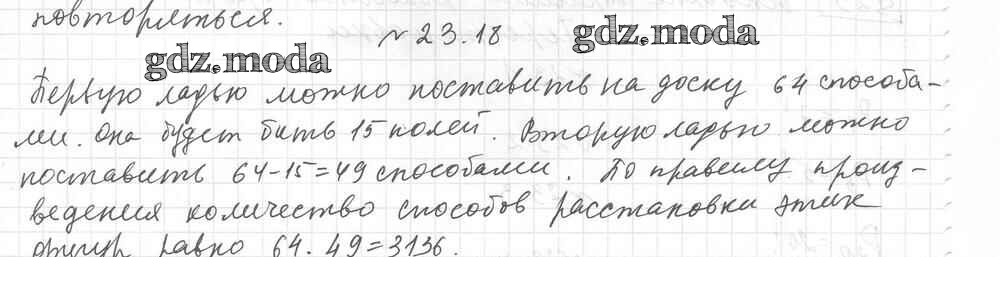 повторяться.
№ 23.18
gdz.moda
gdz.moda
Первую ладью можно поставить на доску 64 способа-
ми. Она будет бить 15 полей. Вторую ладью можно
поставить 64-15=49 способами. По правилу произ-
ведения количество способов расстановки этих
фигур равно 64·49=3136.